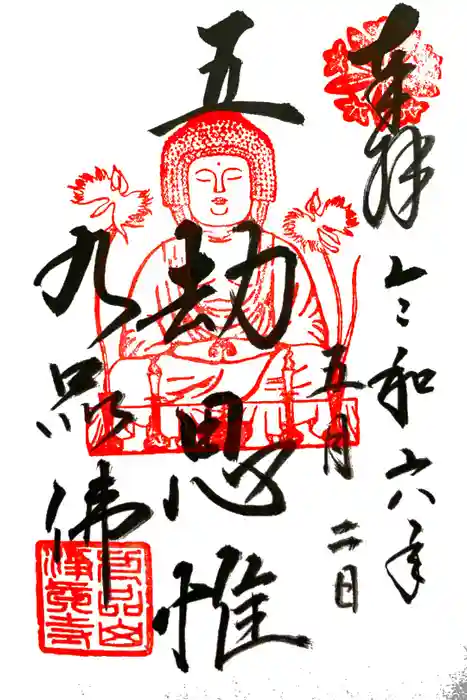 奉拝
令和六年
五月二日
五劫思惟
九品佛
九品山
浄真寺